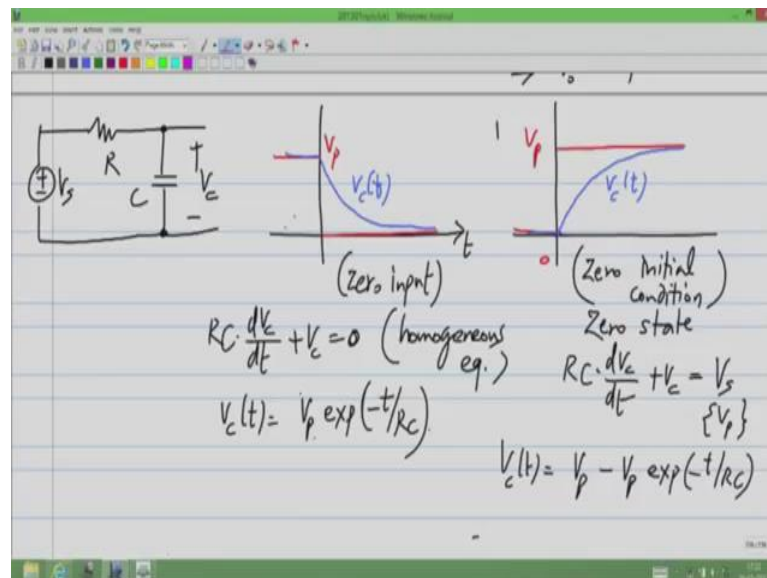 R
Vs
C
+
Vc
-
Vp
Vc(t)
t
(Zero input)
RC. dVc/dt + Vc = 0 (homogeneous eq.)
Vc(t) = Vp exp(-t/RC)
1
Vp
Vc(t)
0
(Zero initial condition)
Zero state
RC. dVc/dt + Vc = Vs
{Vp}
Vc(t) = Vp - Vp exp(-t/RC)